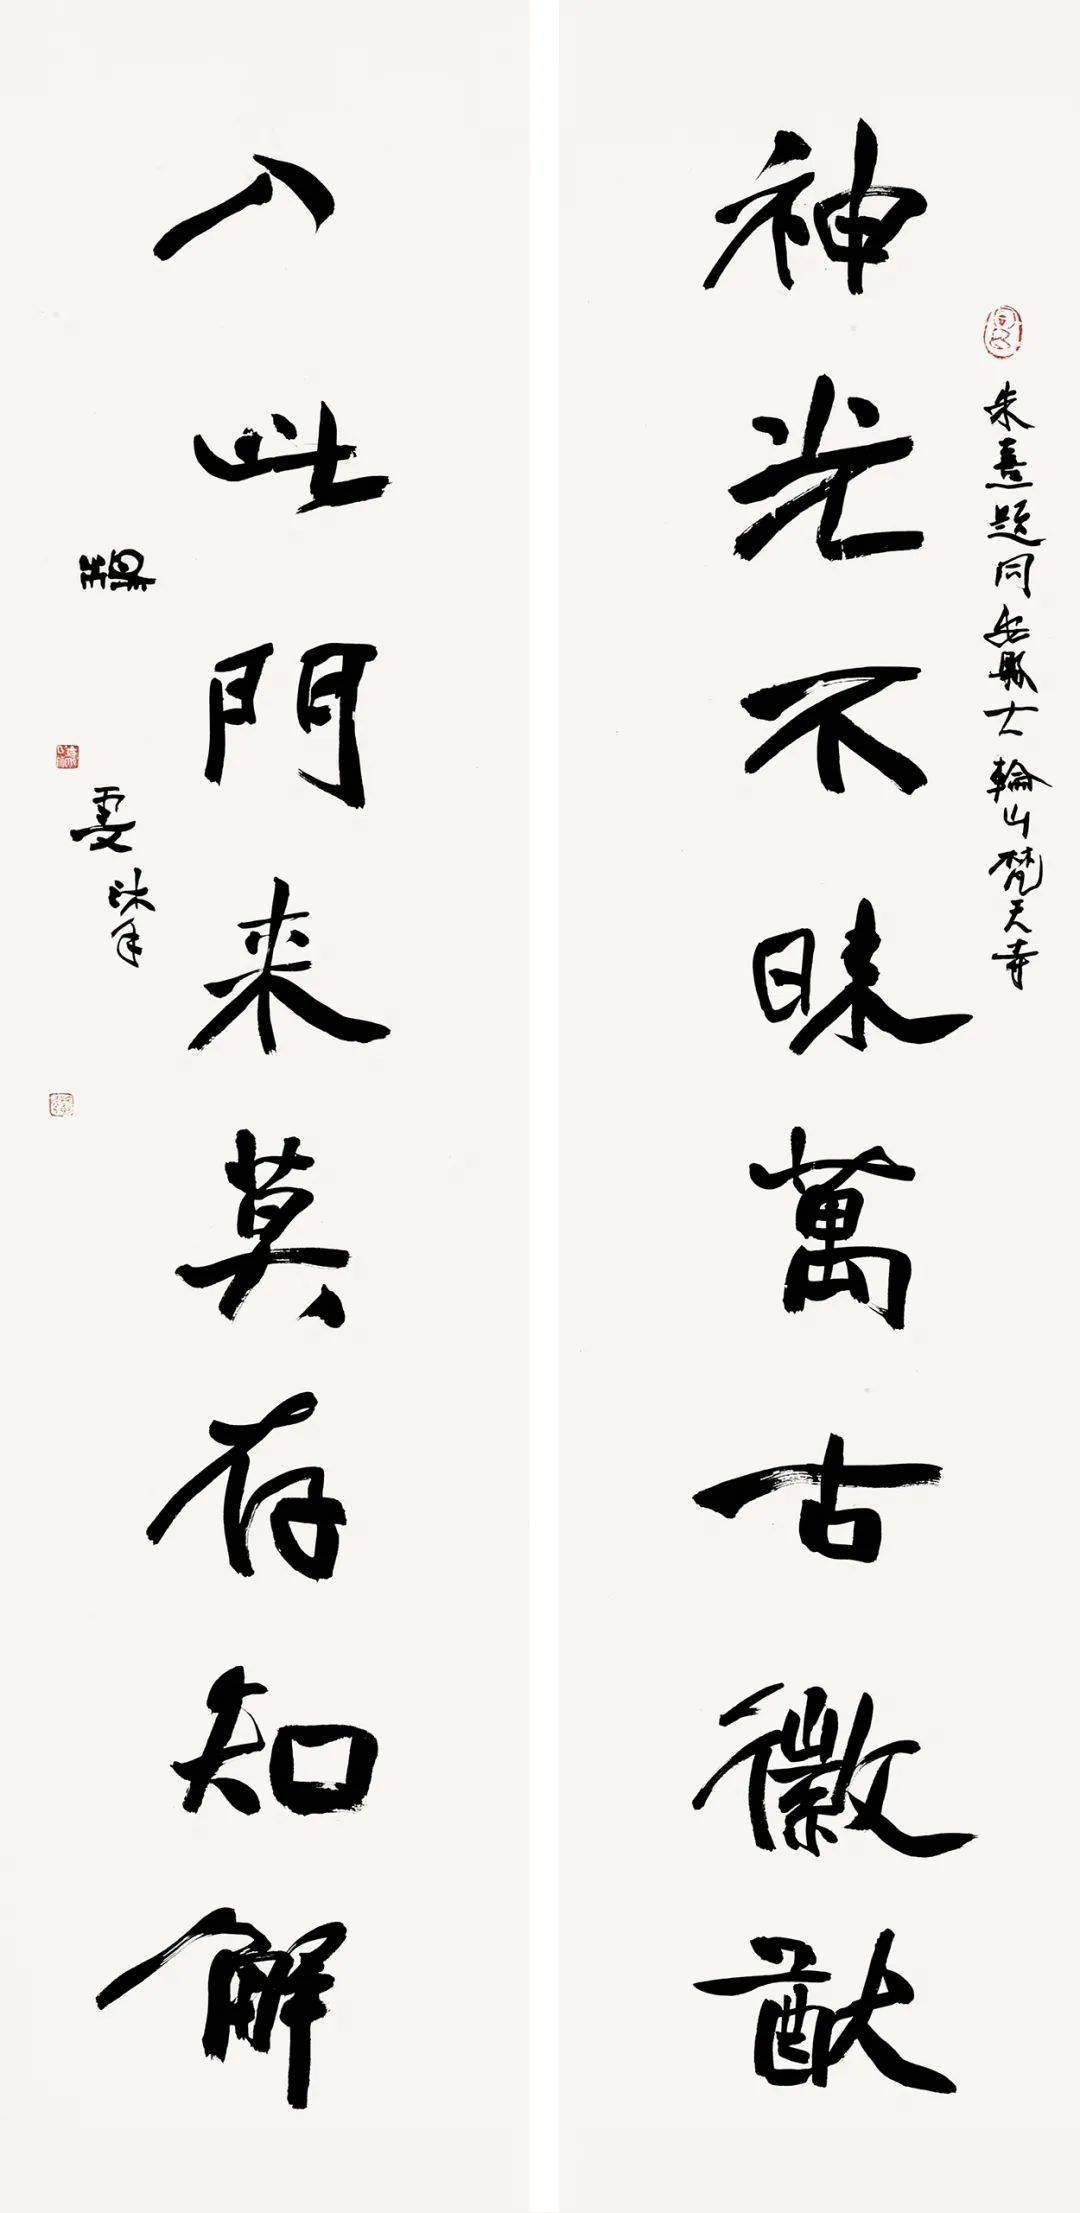 神光不昧萬古徽猷
朱熹题同安縣大輪山梵天寺
入此門来莫存知解
雯沐手